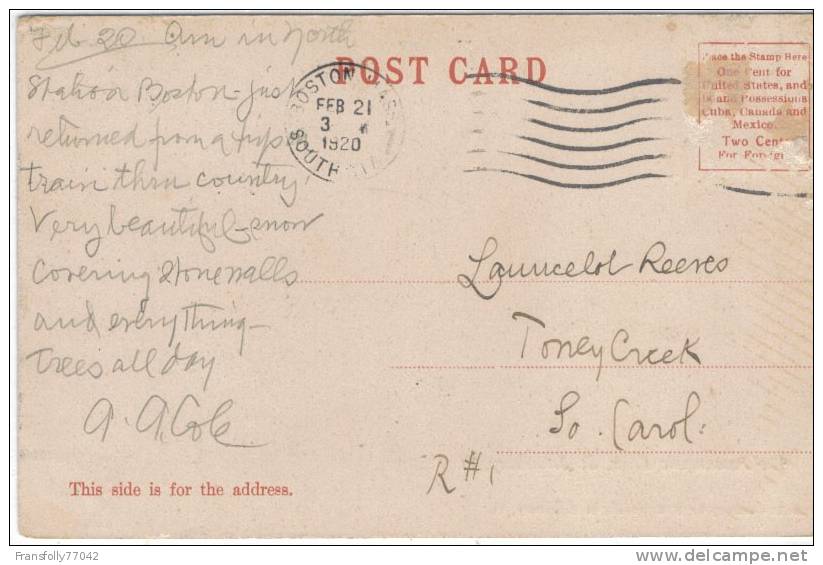 Feb 20 Am in North
Station Boston - just
returned from a trip
train thru country
Very beautiful - snow
Covering Stone walls
and everything -
trees all day
A. A. Cole
POST CARD
BOSTON MASS
FEB 21
3
1920
SOUTH STA
Place the Stamp Here
One Cent for
United States, and
Island Possessions
Cuba, Canada and
Mexico.
Two Cents
For Foreign
Launcelot Reeves
Toney Creek
So. Carol.
R#1
This side is for the address.
Fransfolly77042
www.delcampe.net